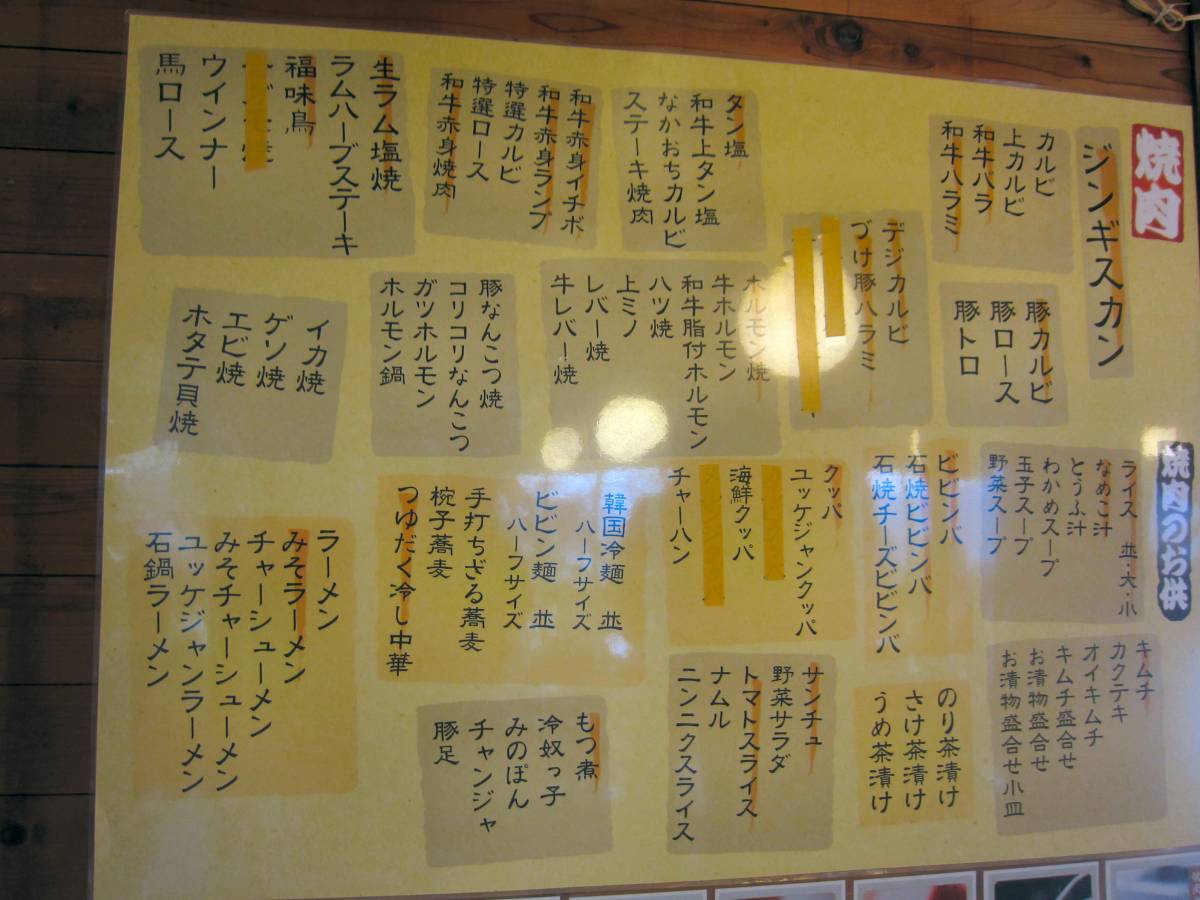 焼肉
ジンギスカン
カルビ
上カルビ
和牛バラ
和牛ハラミ
豚カルビ
豚ロース
豚トロ
デジカルビ
づけ豚ハラミ
タン塩
和牛上タン塩
なかおちカルビ
ステーキ焼肉
和牛赤身イチボ
和牛赤身ランプ
特選カルビ
特選ロース
和牛赤身焼肉
生ラム塩焼
ラムハーブステーキ
福味鳥
ウインナー
馬ロース
ホルモン焼
牛ホルモン
和牛脂付ホルモン
ハツ焼
上ミノ
レバー焼
牛レバー焼
豚なんこつ焼
コリコリなんこつ
ガツホルモン
ホルモン鍋
イカ焼
ゲソ焼
エビ焼
ホタテ貝焼
焼肉のお供
ライス 並・大・小
なめこ汁
とうふ汁
わかめスープ
玉子スープ
野菜スープ
ビビンバ
石焼ビビンバ
石焼チーズビビンバ
クッパ
ユッケジャンクッパ
海鮮クッパ
チャーハン
韓国冷麺 並
ハーフサイズ
ビビン麺 並
ハーフサイズ
手打ちざる蕎麦
椀子蕎麦
つゆだく冷し中華
ラーメン
みそラーメン
チャーシューメン
みそチャーシューメン
ユッケジャンラーメン
石鍋ラーメン
キムチ
カクテキ
オイキムチ
キムチ盛合せ
お漬物盛合せ
お漬物盛合せ小皿
のり茶漬け
さけ茶漬け
うめ茶漬け
サンチュ
野菜サラダ
トマトスライス
ナムル
ニンニクスライス
もつ煮
冷奴っ子
みのぽん
チャンジャ
豚足